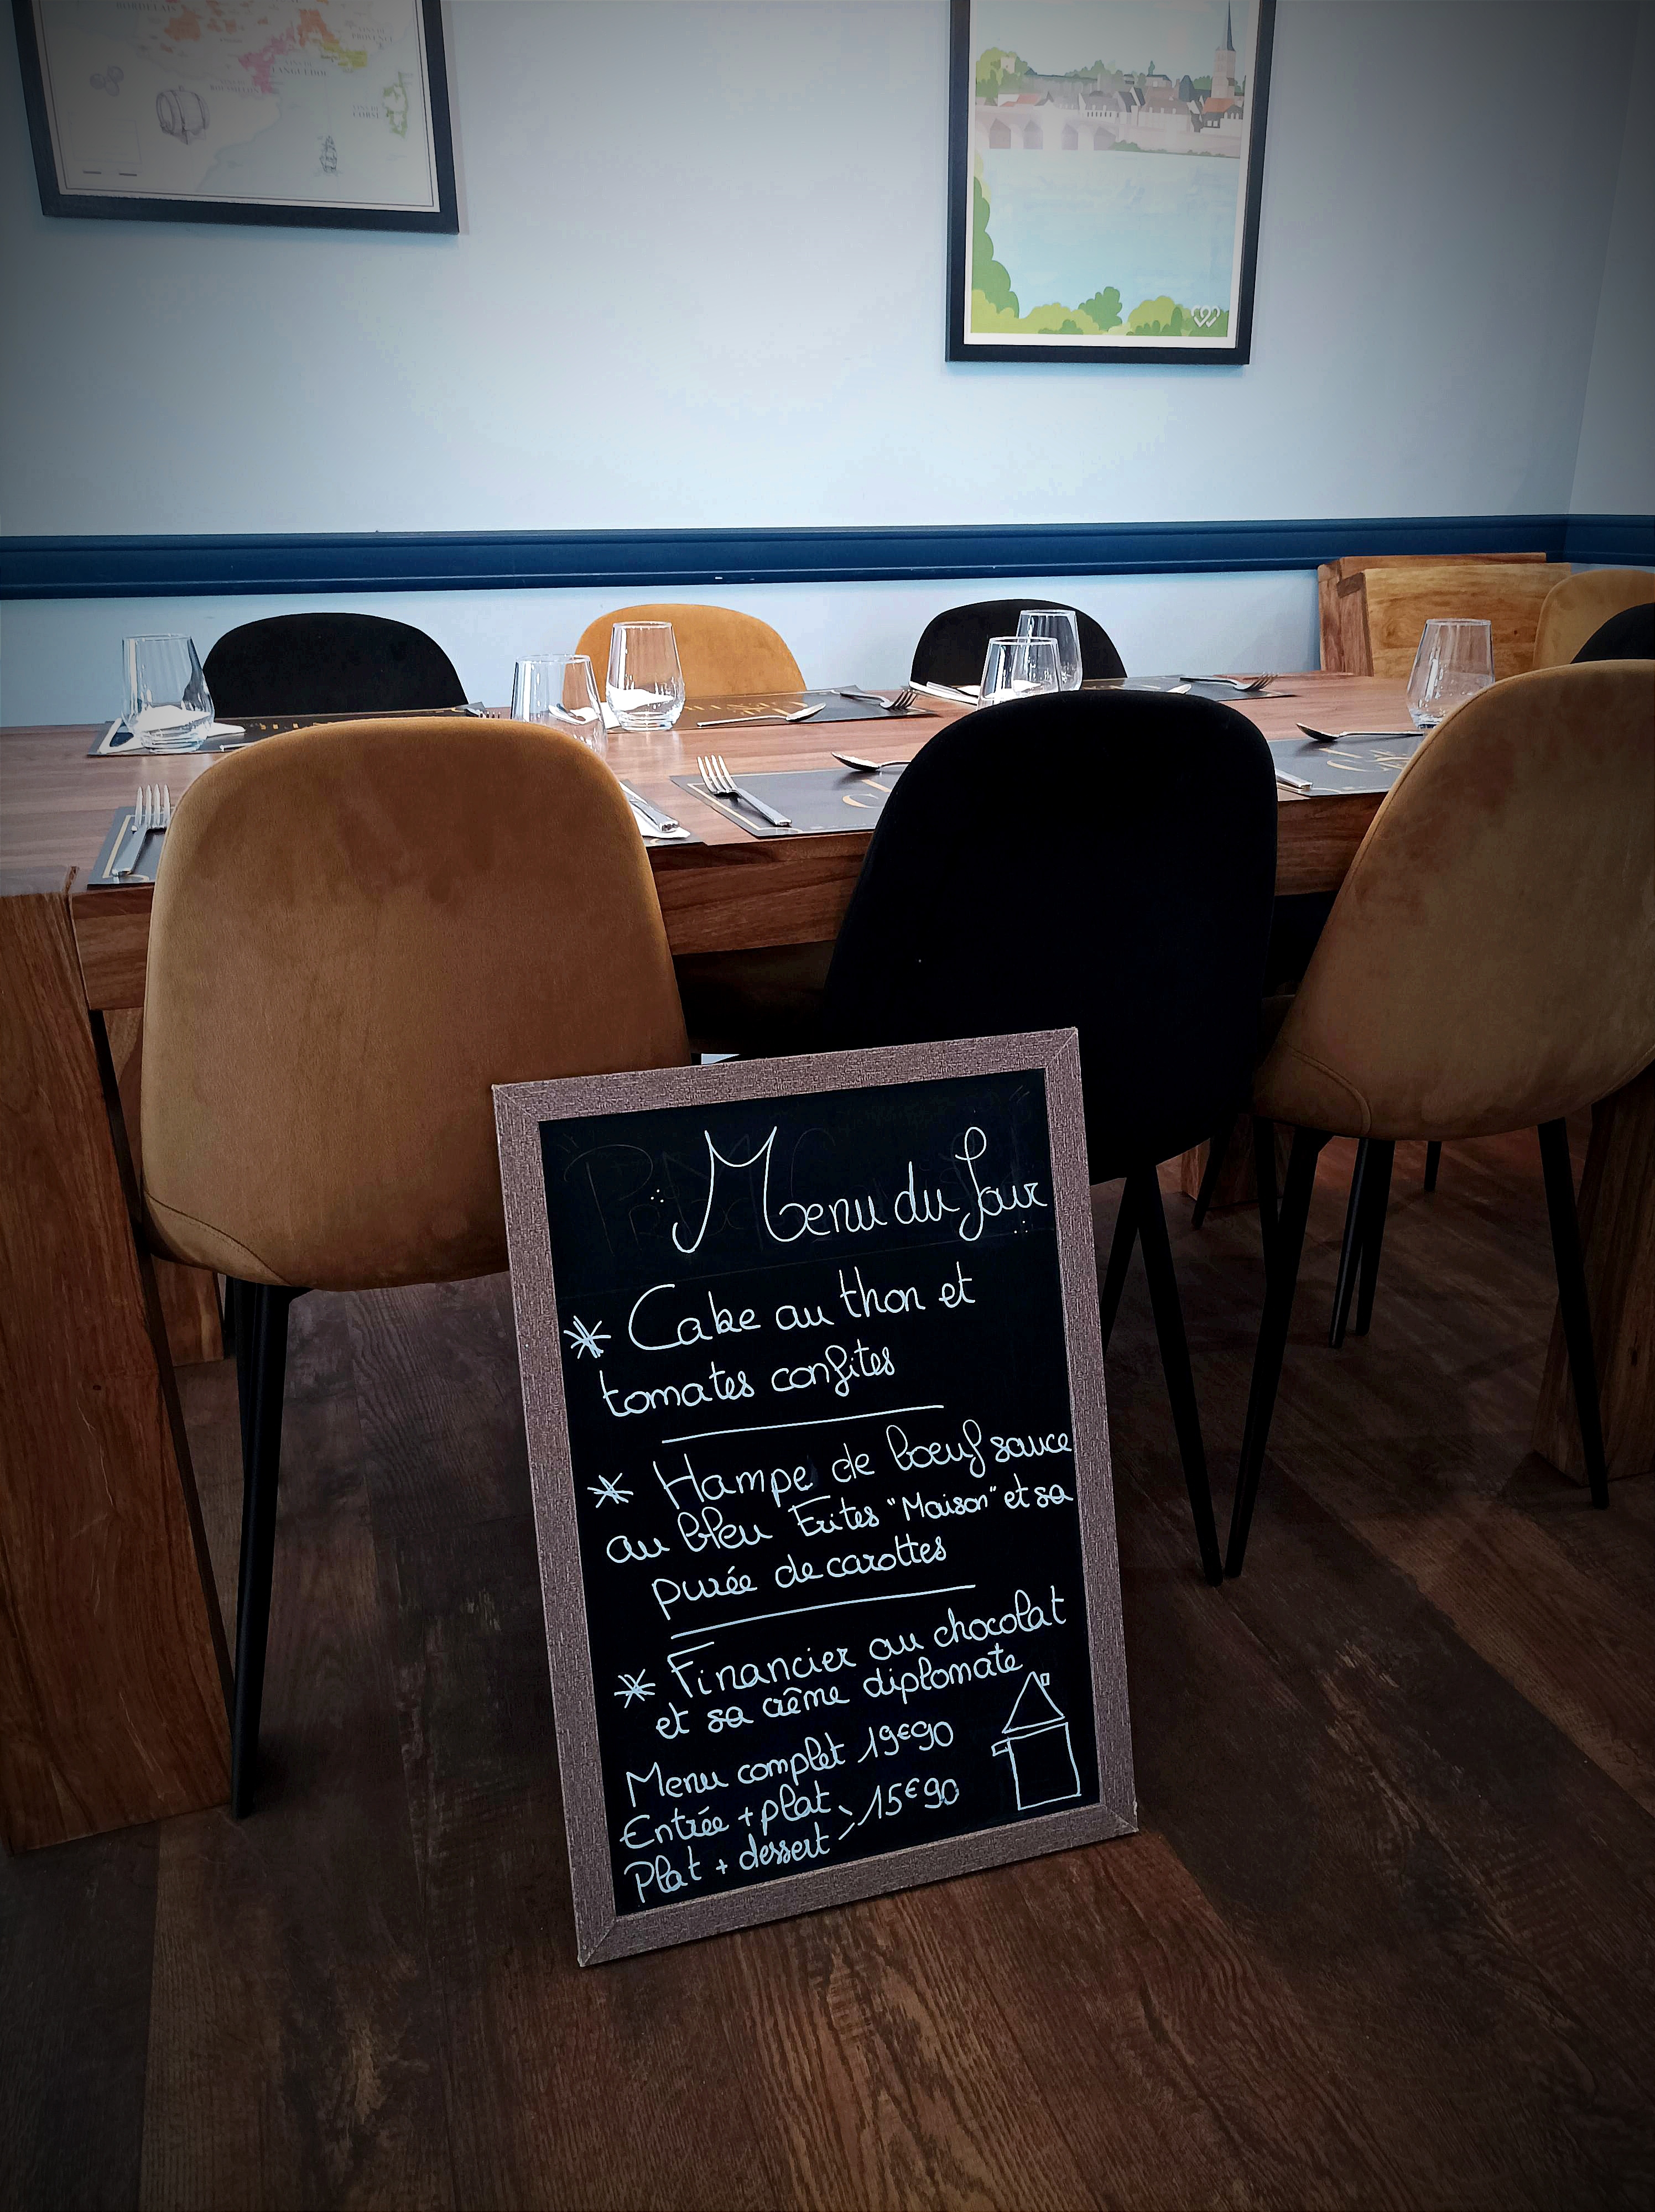 BORDELAIS
PROVENCE
LANGUEDOC
ROUSSILLON
CORSE
Menu du Jour
* Cake au thon et
tomates confites
* Hampe de boeuf sauce
au bleu Frites "Maison" et sa
purée de carottes
* Financier au chocolat
et sa crème diplomate
Menu complet 19€90
Entrée + plat
> 15€90
Plat + dessert